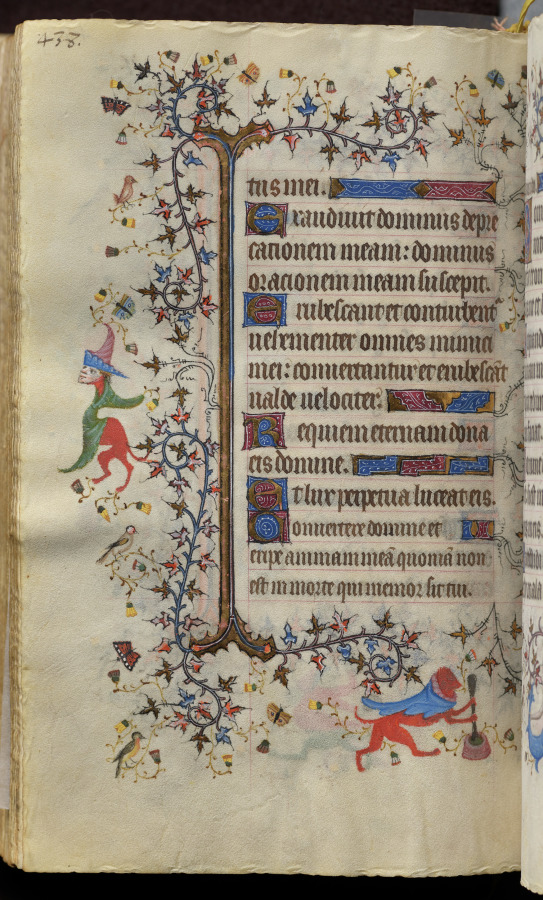 438.
tus mei.
Exaudiuit dominus depre
cationem meam: dominus
orationem meam suscepit.
Erubescant et conturbent
uehementer omnes inimici
mei: conuertantur et erubescāt
ualde uelociter.
Requiem eternam dona
eis domine.
Et lux perpetua luceat eis.
Conuertere domine et
eripe animam meā quoniā non
est in morte qui memor sit tui.